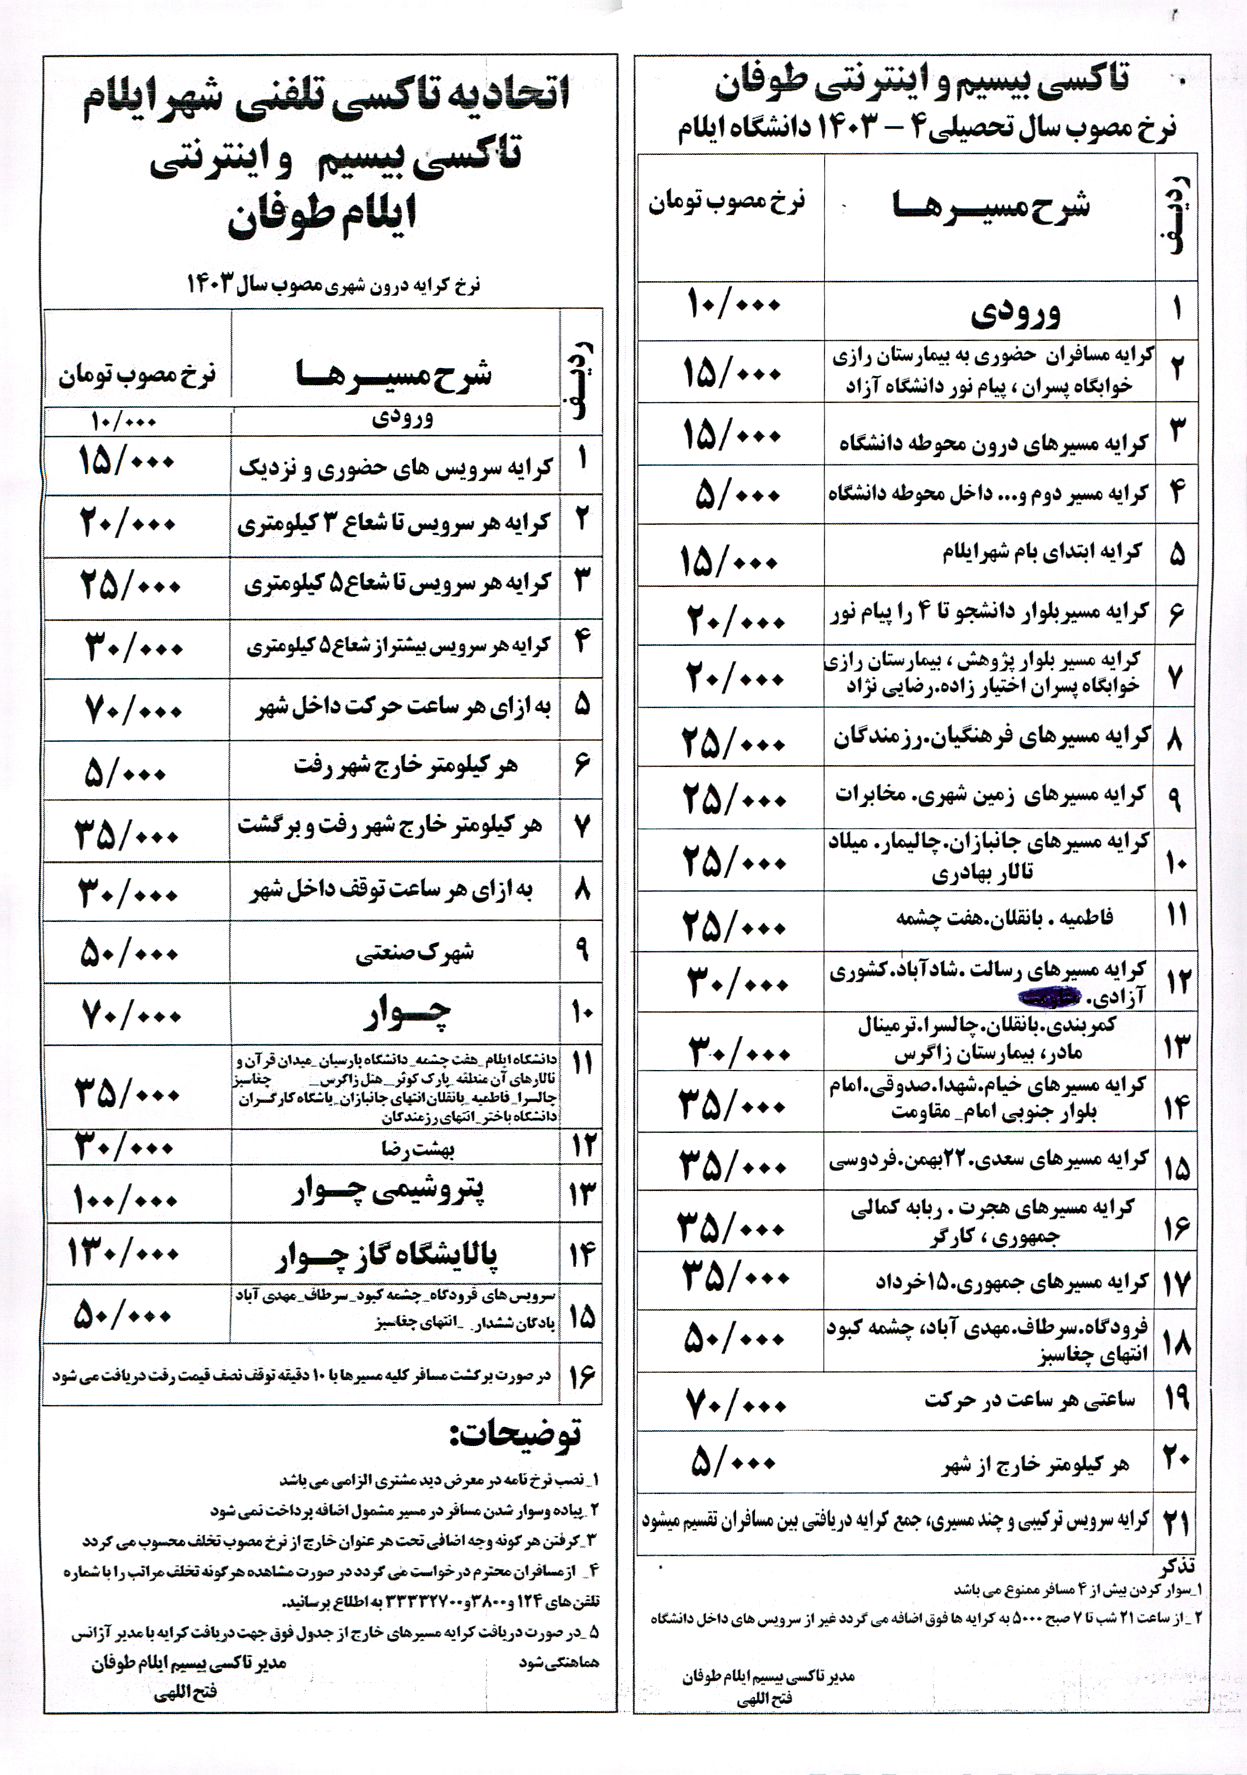 تاکسی بیسیم و اینترنتی طوفان
نرخ مصوب سال تحصیلی ۴ – ۱۴۰۳ دانشگاه ایلام
ردیف شرح مسیرها نرخ مصوب تومان
۱ ورودی ۱۰/۰۰۰
۲ کرایه مسافران حضوری به بیمارستان رازی ۱۵/۰۰۰
خوابگاه پسران ، پیام نور دانشگاه آزاد
۳ کرایه مسیرهای درون محوطه دانشگاه ۱۵/۰۰۰
۴ کرایه مسیر دوم و... داخل محوطه دانشگاه ۵/۰۰۰
۵ کرایه ابتدای بام شهرایلام ۱۵/۰۰۰
۶ کرایه مسیربلوار دانشجو تا ۴ را پیام نور ۲۰/۰۰۰
۷ کرایه مسیر بلوار پژوهش ، بیمارستان رازی ۲۰/۰۰۰
خوابگاه پسران اختیار زاده.رضایی نژاد
۸ کرایه مسیرهای فرهنگیان.رزمندگان ۲۵/۰۰۰
۹ کرایه مسیرهای زمین شهری. مخابرات ۲۵/۰۰۰
۱۰ کرایه مسیرهای جانبازان.چالیمار. میلاد ۲۵/۰۰۰
تالار بهادری
۱۱ فاطمیه . بانقلان.هفت چشمه ۲۵/۰۰۰
۱۲ کرایه مسیرهای رسالت .شادآباد.کشوری ۳۰/۰۰۰
آزادی.
۱۳ کمربندی.بانقلان.چالسرا.ترمینال ۳۰/۰۰۰
مادر، بیمارستان زاگرس
۱۴ کرایه مسیرهای خیام.شهدا.صدوقی.امام ۳۵/۰۰۰
بلوار جنوبی امام_ مقاومت
۱۵ کرایه مسیرهای سعدی.۲۲بهمن.فردوسی ۳۵/۰۰۰
۱۶ کرایه مسیرهای هجرت . ربابه کمالی ۳۵/۰۰۰
جمهوری ، کارگر
۱۷ کرایه مسیرهای جمهوری.۱۵خرداد ۳۵/۰۰۰
۱۸ فرودگاه.سرطاف.مهدی آباد، چشمه کبود ۵۰/۰۰۰
انتهای چغاسبز
۱۹ ساعتی هر ساعت در حرکت ۷۰/۰۰۰
۲۰ هر کیلومتر خارج از شهر ۵/۰۰۰
۲۱ کرایه سرویس ترکیبی و چند مسیری، جمع کرایه دریافتی بین مسافران تقسیم میشود
تذکر
۱_سوار کردن بیش از ۴ مسافر ممنوع می باشد
۲_از ساعت ۲۱ شب تا ۷ صبح ۵۰۰۰ به کرایه ها فوق اضافه می گردد غیر از سرویس های داخل دانشگاه
مدیر تاکسی بیسیم ایلام طوفان
فتح اللهی
اتحادیه تاکسی تلفنی شهر ایلام
تاکسی بیسیم و اینترنتی
ایلام طوفان
نرخ کرایه درون شهری مصوب سال ۱۴۰۳
ردیف شرح مسیرها نرخ مصوب تومان
ورودی ۱۰/۰۰۰
۱ کرایه سرویس های حضوری و نزدیک ۱۵/۰۰۰
۲ کرایه هر سرویس تا شعاع ۳ کیلومتری ۲۰/۰۰۰
۳ کرایه هر سرویس تا شعاع۵ کیلومتری ۲۵/۰۰۰
۴ کرایه هر سرویس بیشتر از شعاع۵ کیلومتری ۳۰/۰۰۰
۵ به ازای هر ساعت حرکت داخل شهر ۷۰/۰۰۰
۶ هر کیلومتر خارج شهر رفت ۵/۰۰۰
۷ هر کیلومتر خارج شهر رفت و برگشت ۳۵/۰۰۰
۸ به ازای هر ساعت توقف داخل شهر ۳۰/۰۰۰
۹ شهرک صنعتی ۵۰/۰۰۰
۱۰ چوار ۷۰/۰۰۰
۱۱ دانشگاه ایلام_ هفت چشمه_ دانشگاه پارسیان_ میدان قرآن و ۳۵/۰۰۰
تالارهای آن منطقه_ پارک کوثر_ هتل زاگرس_ چغاسبز
چالسرا_ فاطمیه_ بانقلان انتهای جانبازان_ باشگاه کارگران
دانشگاه باختر_ انتهای رزمندگان
۱۲ بهشت رضا ۳۰/۰۰۰
۱۳ پتروشیمی چوار ۱۰۰/۰۰۰
۱۴ پالایشگاه گاز چوار ۱۳۰/۰۰۰
۱۵ سرویس های فرودگاه_ چشمه کبود_ سرطاف_ مهدی آباد ۵۰/۰۰۰
پادگان ششدار. _انتهای چغاسبز
۱۶ در صورت برگشت مسافر کلیه مسیرها با ۱۰ دقیقه توقف نصف قیمت رفت دریافت می شود
توضیحات:
۱_نصب نرخ نامه در معرض دید مشتری الزامی می باشد
۲_پیاده وسوار شدن مسافر در مسیر مشمول اضافه پرداخت نمی شود
۳_گرفتن هر گونه وجه اضافی تحت هر عنوان خارج از نرخ مصوب تخلف محسوب می گردد
۴_ از مسافران محترم درخواست می گردد در صورت مشاهده هرگونه تخلف مراتب را با شماره
تلفن های ۱۲۴ و۳۸۰۰و۳۳۳۲۷۰۰ به اطلاع برسانید.
۵_در صورت دریافت کرایه مسیرهای خارج از جدول فوق جهت دریافت کرایه با مدیر آژانس
هماهنگی شود
مدیر تاکسی بیسیم ایلام طوفان
فتح اللهی